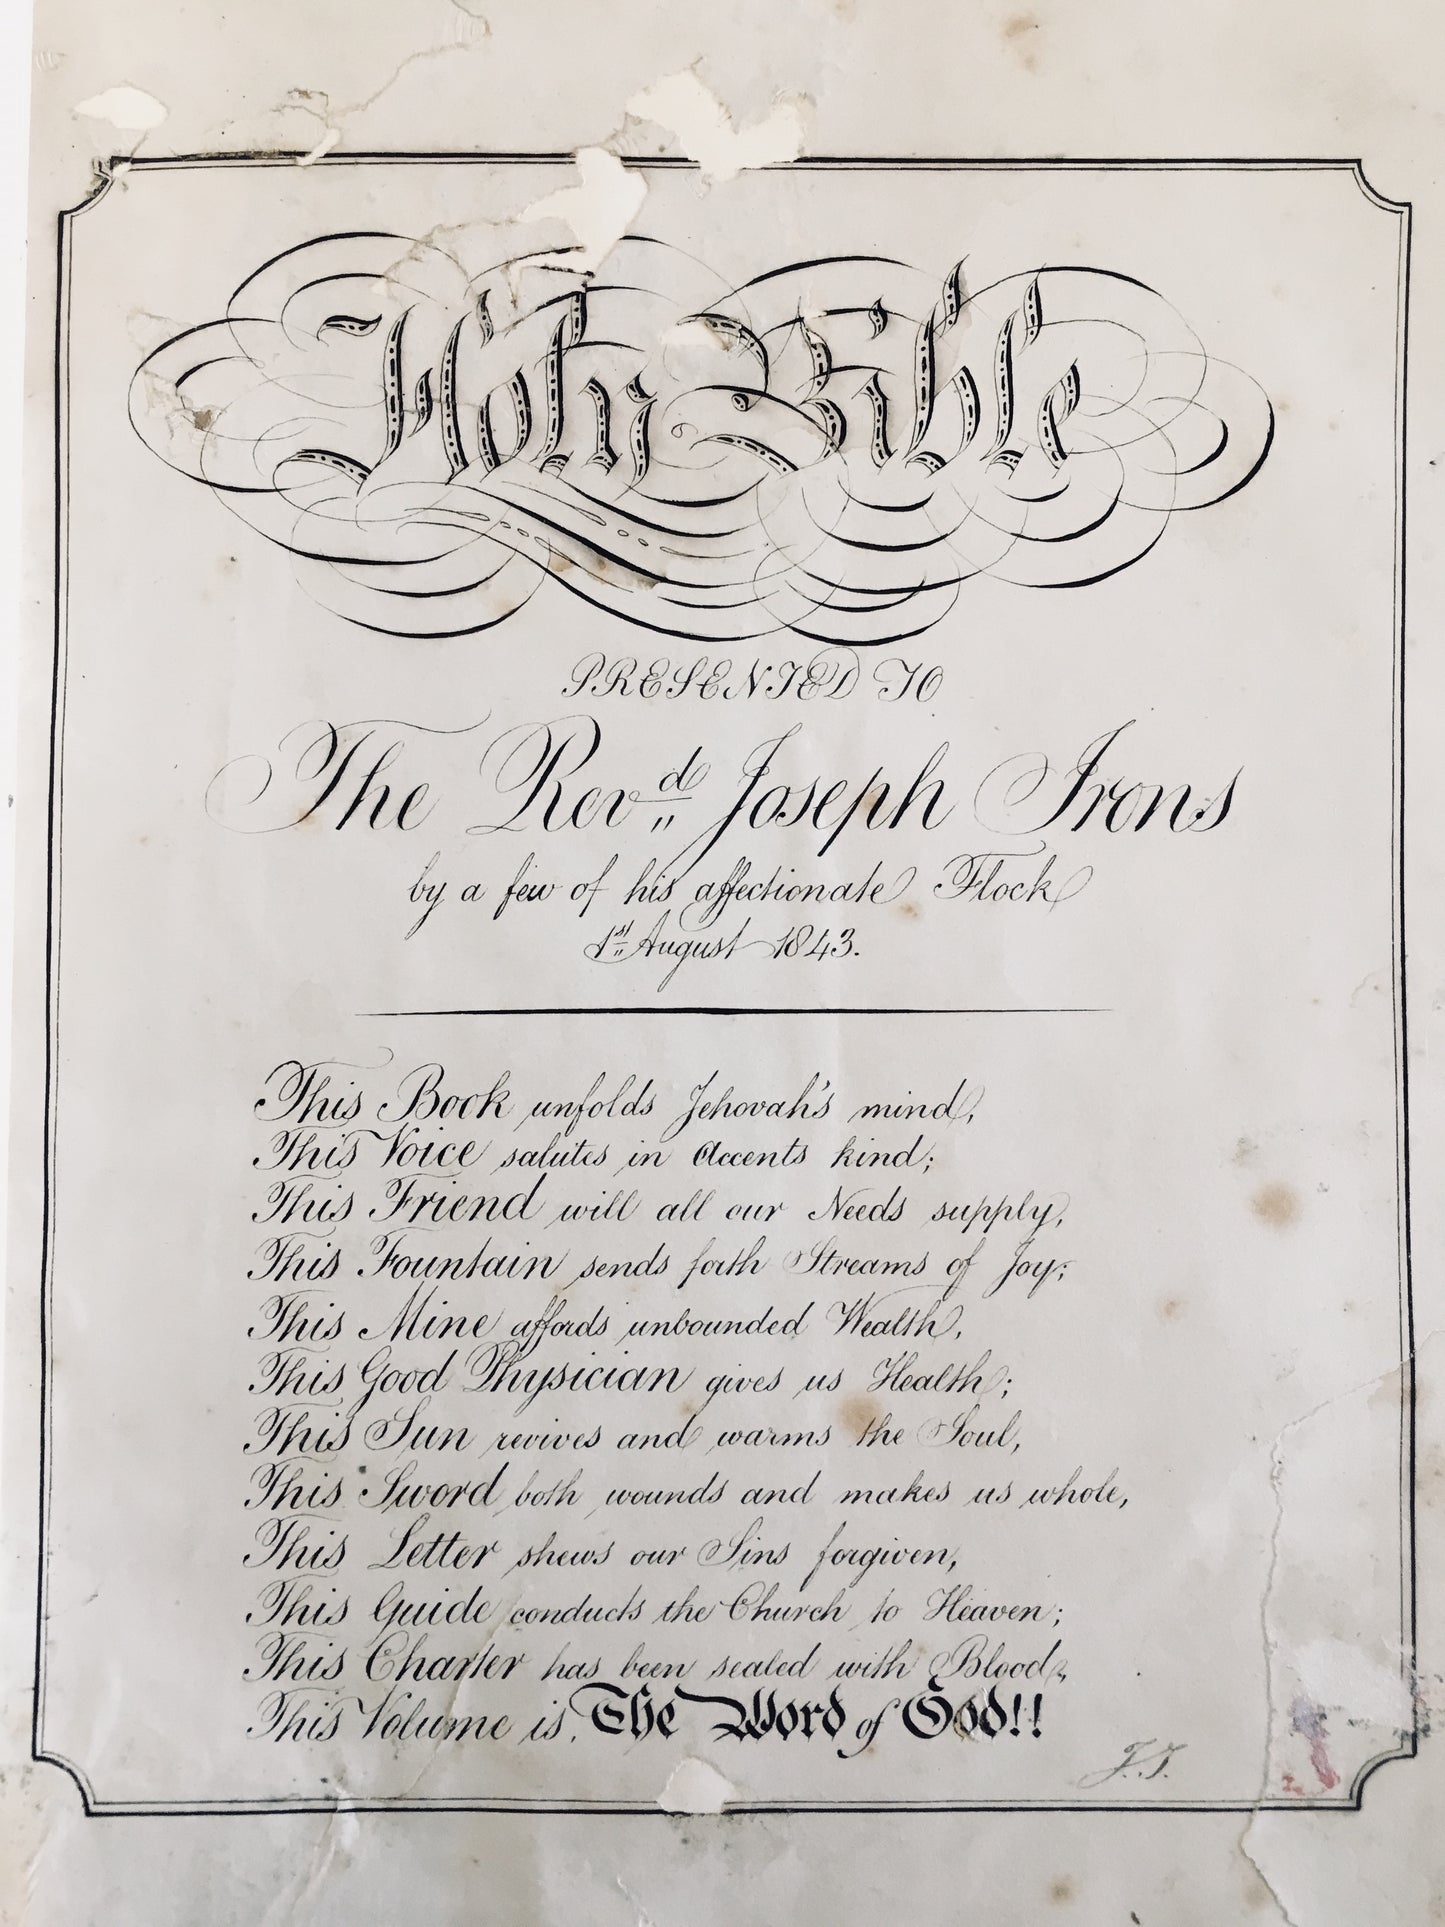 Holy Bible
PRESENTED TO
The Revd Joseph Irons
by a few of his affectionate Flock
1st August 1843.
This Book unfolds Jehovah's mind,
This Voice salutes in Accents kind;
This Friend will all our Needs supply,
This Fountain sends forth Streams of Joy;
This Mine affords unbounded Wealth,
This Good Physician gives us Health;
This Sun revives and warms the Soul,
This Sword both wounds and makes us whole,
This Letter shews our Sins forgiven,
This Guide conducts the Church to Heaven;
This Charter has been sealed with Blood,
This Volume is, The Word of God!!